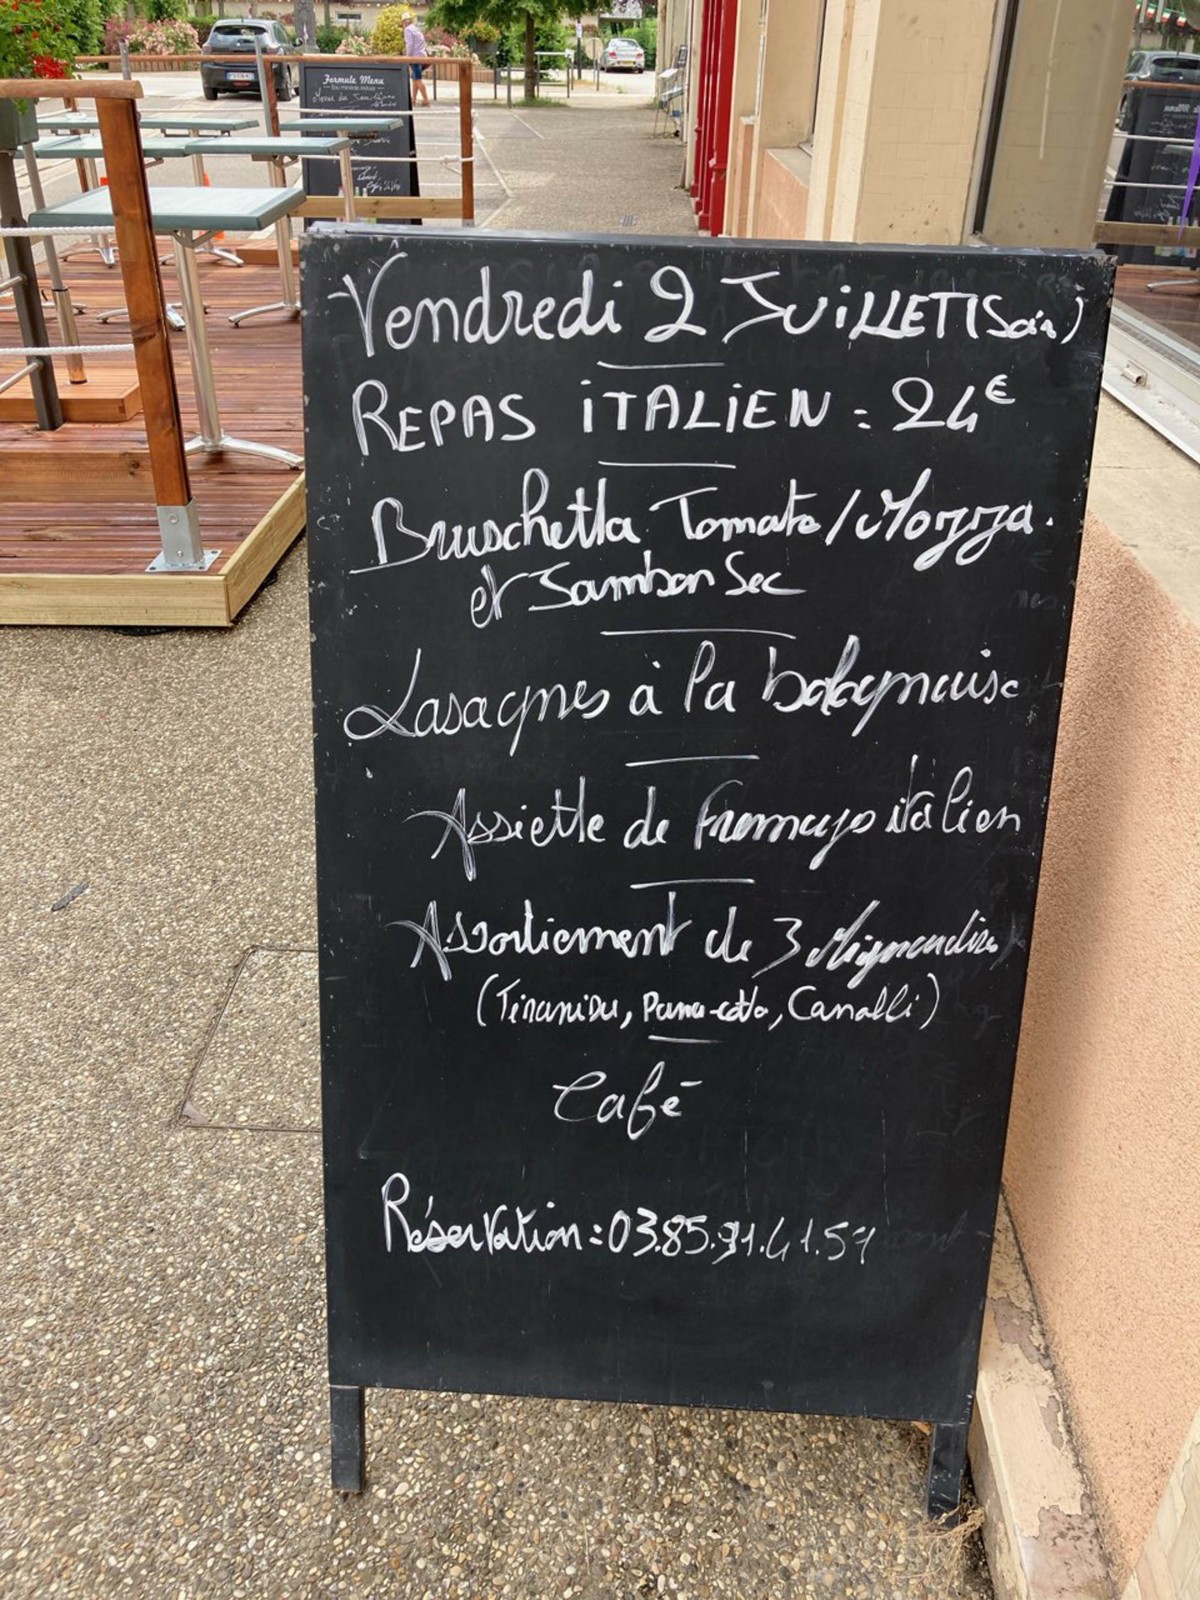 Formule Menu
Vendredi 2 JUiLLET (Soir)
REPAS iTALiEN : 24€
Bruschetta Tomate/Mozza.
et Jambon Sec
Lasagnes à la bolognaise
Assiette de Fromage italien
Assortiement de 3 Mignardises
(Tiramisu, Panna-cotta, Canolli)
Café
Réservation : 03.85.91.41.57